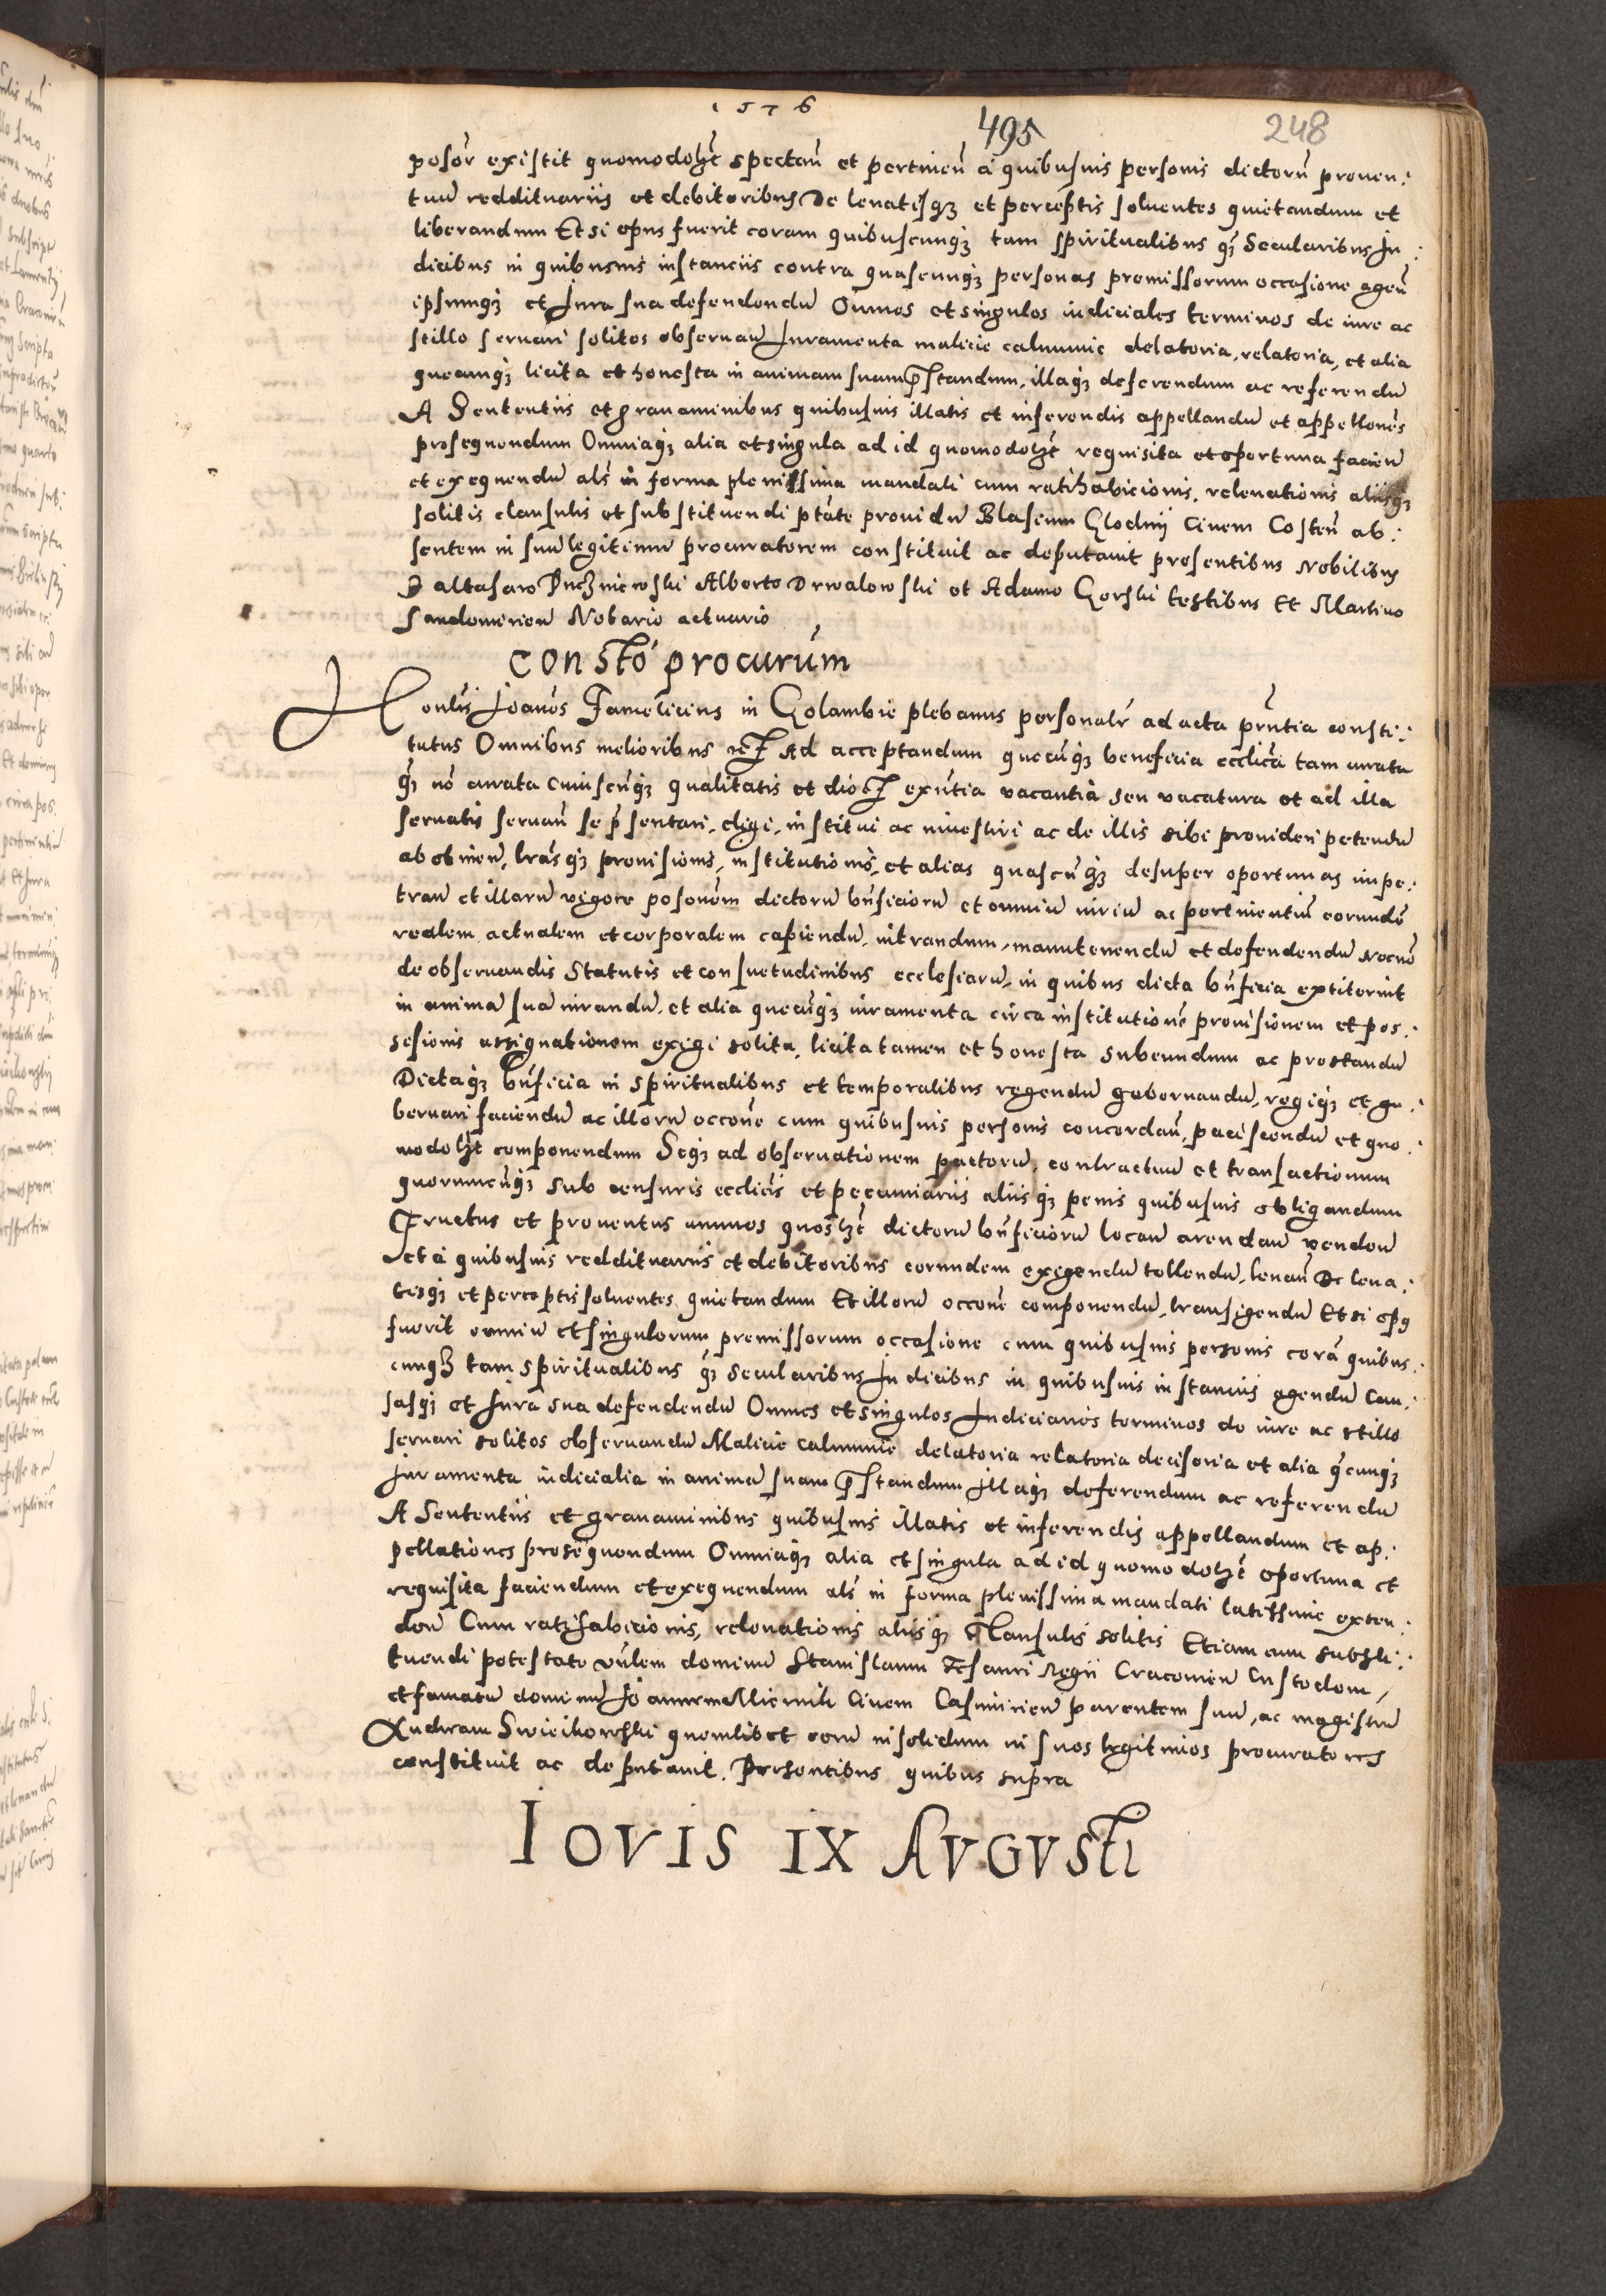 1576
495
248
posór existit quomodolʒt spectań et pertineń à quibusuis personis dictorū prouen:
tuū reddituariis et debitoribus De leuatisqʒ et perceptis soluentes quietandum et
liberandum Et si opus fuerit coram quibuscunqʒ tam spiritualibus qʒ Secularibus Ju:
dicibus in quibusuis instanciis contra quascunqʒ personas premissorum occasione ageń
ipsumqʒ et Jura sua defendendū Omnes et singulos iudiciales terminos de iure ac
stillo seruari solitos obseruań Juramenta malicie calumnie delatoria, relatoria, et alia
quecunqʒ licita et honesta in animam suam p̄standum, illaqʒ deferendum ac referendū
A Sententiis et grauaminibus quibusuis illatis et inferendis appellandū et appellońes
prosequendum Omniaqʒ alia et singula ad id quomodolʒt requisita et oportuna facień
et exequendū alś in forma plenissima mandati cum ratihabicionis, releuationis aliisqʒ
solitis clausulis et substituendi ptáte prouidū Blasium Glodny Ciuem Costeń ab:
sentem in suū legitimū procuratorem constituit ac deputauit presentibus Nobilibus
Baltasaro Duczniewski Alberto Drwalowski et Adamo Gorski testibus Et Martino
Sandomirień Notario actuario
Constó procurúm
Honlis Joanes Famelicius in Golambie plebanus personalr ad acta prńtia consti:
tutus Omnibus melioribus etc Ad acceptandum quecūqʒ beneficia ecclića tam curata
qʒ nō curata cuiuscūqʒ qualitatis et dioc exńtia vacantia seu vacatura et ad illa
seruatis seruań se p̄sentari, eligi, institui ac inuestiri ac de illis sibi prouideri petendū
ac obtineń, lrasqʒ prouisionis, institutionis, et alias quascūqʒ desuper oportunas impe:
trań et illarū vigore posońem dictorū bńficiorū et omniū iuriū ac pertinentiū eorundē
realem actualem et corporalem capiendū, intrandum, manutenendū et defendendū Necnō
de obseruandis Statutis et consuetudinibus ecclesiarū, in quibus dicta bńficia extiterint
in animā suā iurandū, et alia quecūqʒ iuramenta circa institutionē prouisionem et pos:
sesionis assignationem exigi solita, licita tamen et honesta subeundum ac prestandū
Dictaqʒ bńficia in spiritualibus et temporalibus regendū gubernandū, regiqʒ et gu:
bernari faciendū ac illorū occońe cum quibusuis personis concordań, paciscendū et quo:
modolʒt componendum Seqʒ ad obseruationem pactorū, contractuū et transactionum
quorumcūqʒ sub censuris ecclićis et pecuniariis aliisqʒ penis quibusuis obligandum
Fructus et prouentus annuos quoslʒt dictorū bńficiorū locań arendań vendeń
et à quibusuis reddituariis et debitoribus eorundem exigendū tollendū, leuań De leua:
tisqʒ et perceptis soluentes quietandum Et illorū occońe componendū, transigendū Et si opus
fuerit omniū et singulorum premissorum occasione cum quibusuis personis corā quibus:
cunqʒ tam spiritualibus qʒ secularibus Judicibus in quibusuis instanciis agendū Cau:
sasqʒ et Jura sua defendendū Omnes et singulos Judiciarios terminos de iure ac stillo
seruari solitos obseruandū Malicie calumnie delatoria relatoria decisoria et alia qcunqʒ
Juramenta iudicialia in animā suam p̄standum illaqʒ deferendum ac referendū
A Sententiis et grauaminibus quibusuis illatis et inferendis appellandum et ap:
pellationes prosequendum Omniaqʒ alia et singula ad id quomodolʒt oportuna et
requisita faciendum et exequendum alś in forma plenissima mandati latissime exten:
deń Cum ratihabicionis, releuationis aliisqʒ Clausulis solitis Etiam cum substi:
tuendi potestate vńlem dominū Stanislaum Tesauri Regii Cracouień Custodem,
et famatū dominū Joannem Miernik Ciuem Casimirień parentem suū, ac magistrū
Andream Swieikowski quemlibet eorū insolidum in suos legitimos procuratores
constituit ac deputauit. Presentibus quibus supra
IOVIS IX AVGVSti